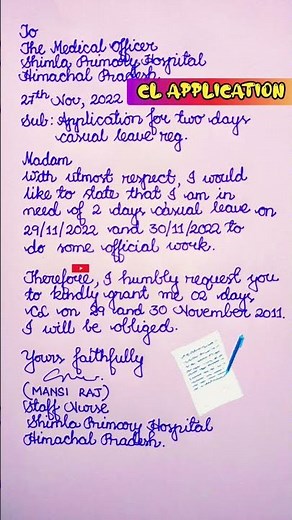 To
The Medical Officer
Shimla Primary Hospital
Himachal Pradesh
CL APPLICATION
27th Nov, 2022
Sub: Application for two days
casual leave reg.
Madam
With utmost respect, I would
like to state that I am in
need of 2 days casual leave on
29/11/2022 and 30/11/2022 to
do some official work.
Therefore, I humbly request you
to kindly grant me 02 days
CL on 29 and 30 November 2011.
I will be obliged.
Yours faithfully
(MANSI RAJ)
Staff Nurse
Shimla Primary Hospital
Himachal Pradesh.